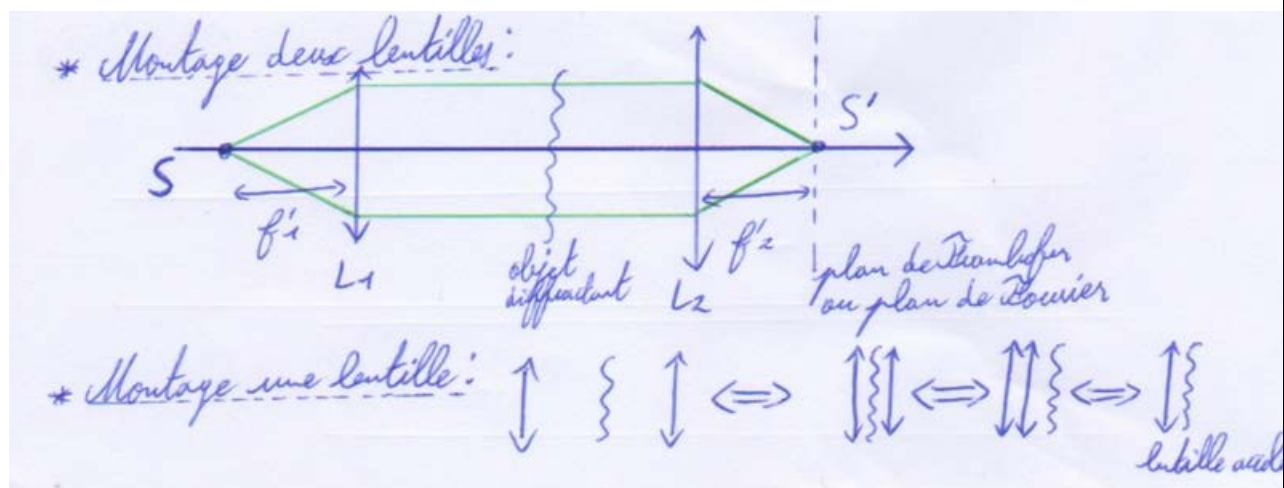 * Montage deux lentilles :
S
S'
f'1
f'2
L1
objet
diffractant
L2
plan de Fraunhofer
ou plan de Fourier
* Montage une lentille :
lentille